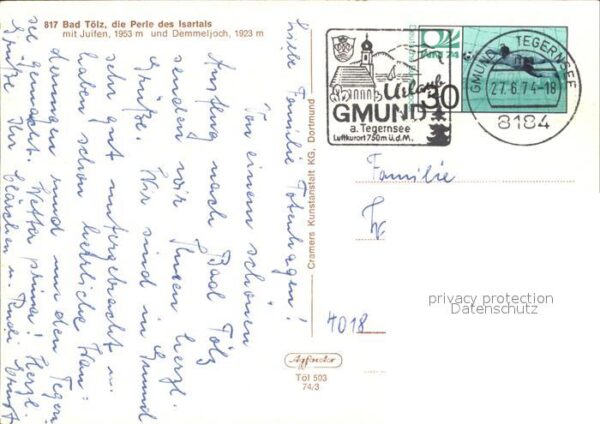 817 Bad Tölz, die Perle des Isartals
mit Juifen, 1953 m und Demmeljoch, 1923 m
Liebe Familie Totenhagen!
Von einem schönen
Ausflug nach Bad Tölz
senden wir Ihnen herzl.
Grüße. Wir sind in Gmund
sehr gut untergebracht u.
haben schon herrliche Wan-
derungen rund um den Tegern
see gemacht. Wetter prima! Herzl.
Grüße Ihr
Clärchen u. Rudi Ernst
Cramers Kunstanstalt KG, Dortmund
Agfacolor
Töl 503
74/3
WM 74
30
Urlaub
GMUND
a. Tegernsee
Luftkurort 750m ü.d.M.
GMUND TEGERNSEE
27.6.74-18
8184
Familie
4018
privacy protection
Datenschutz